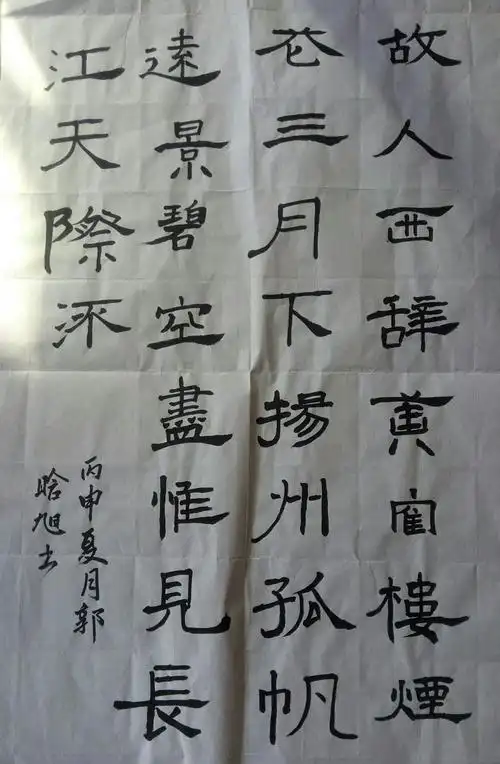 故人西辞黄寉樓煙
花三月下揚州孤帆
遠景碧空盡惟見長
江天際流
丙申夏月郭
晗旭书